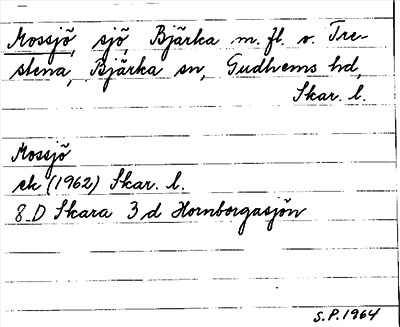 Mossjö, sjö, Bjärka m. fl. o. Tre-
stena, Bjärka sn, Gudhems hd,
Skar. l.
Mossjö
ek (1962) Skar. l.
8 D Skara 3 d Hornborgasjön
S.P. 1964